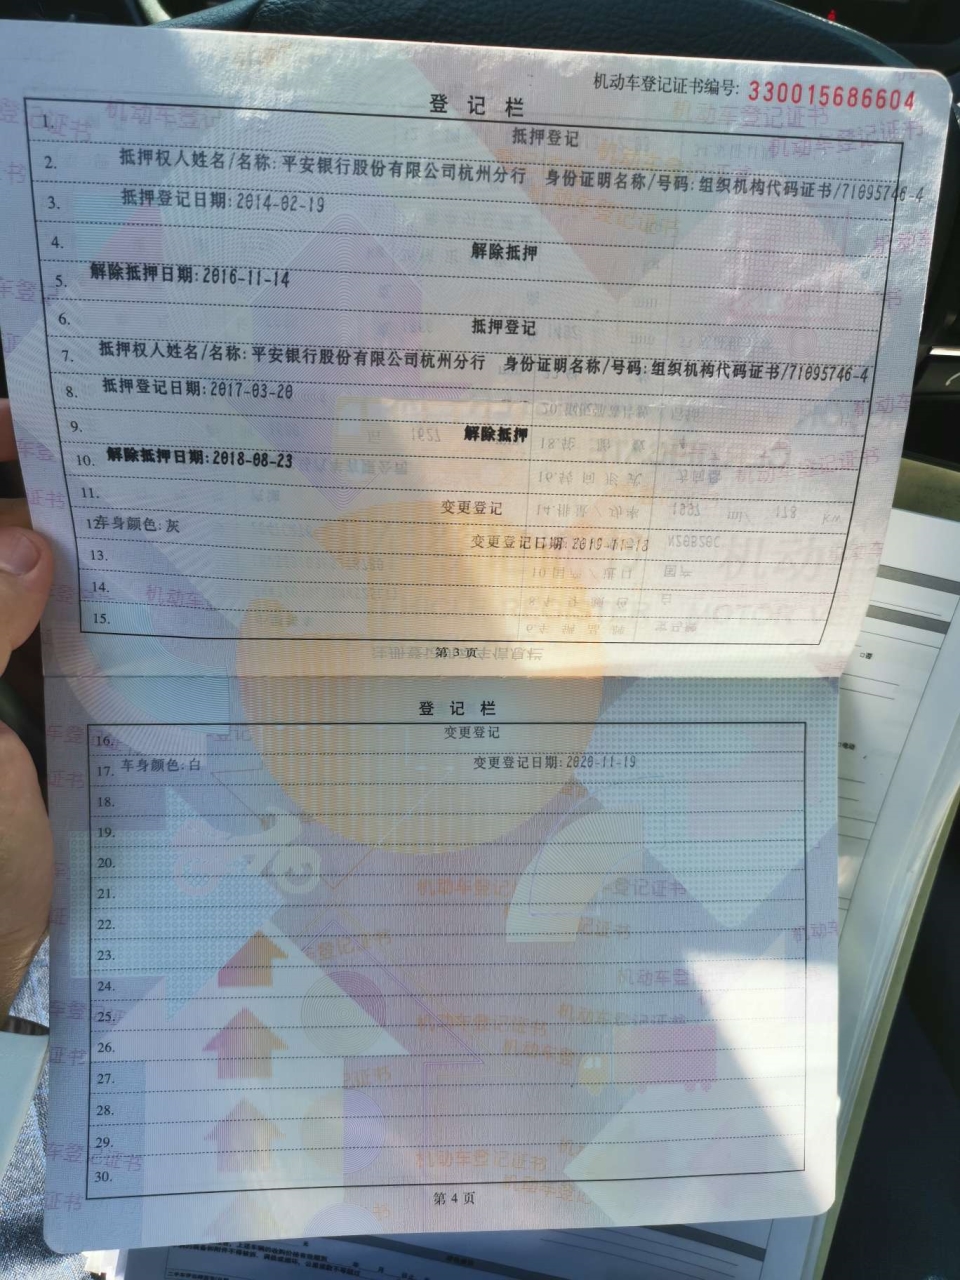 机动车登记证书编号: 330015686604
登 记 栏
1. 抵押登记
2. 抵押权人姓名/名称: 平安银行股份有限公司杭州分行 身份证明名称/号码: 组织机构代码证书/71095746-4
3. 抵押登记日期: 2014-02-19
4. 解除抵押
5. 解除抵押日期: 2016-11-14
6. 抵押登记
7. 抵押权人姓名/名称: 平安银行股份有限公司杭州分行 身份证明名称/号码: 组织机构代码证书/71095746-4
8. 抵押登记日期: 2017-03-20
9. 解除抵押
10. 解除抵押日期: 2018-08-23
11. 变更登记
12. 车身颜色: 灰
变更登记日期
13.
14.
15.
第 3 页
登 记 栏
16. 变更登记
17. 车身颜色: 白 变更登记日期: 2020-11-19
18.
19.
20.
21.
22.
23.
24.
25.
26.
27.
28.
29.
30.
第 4 页